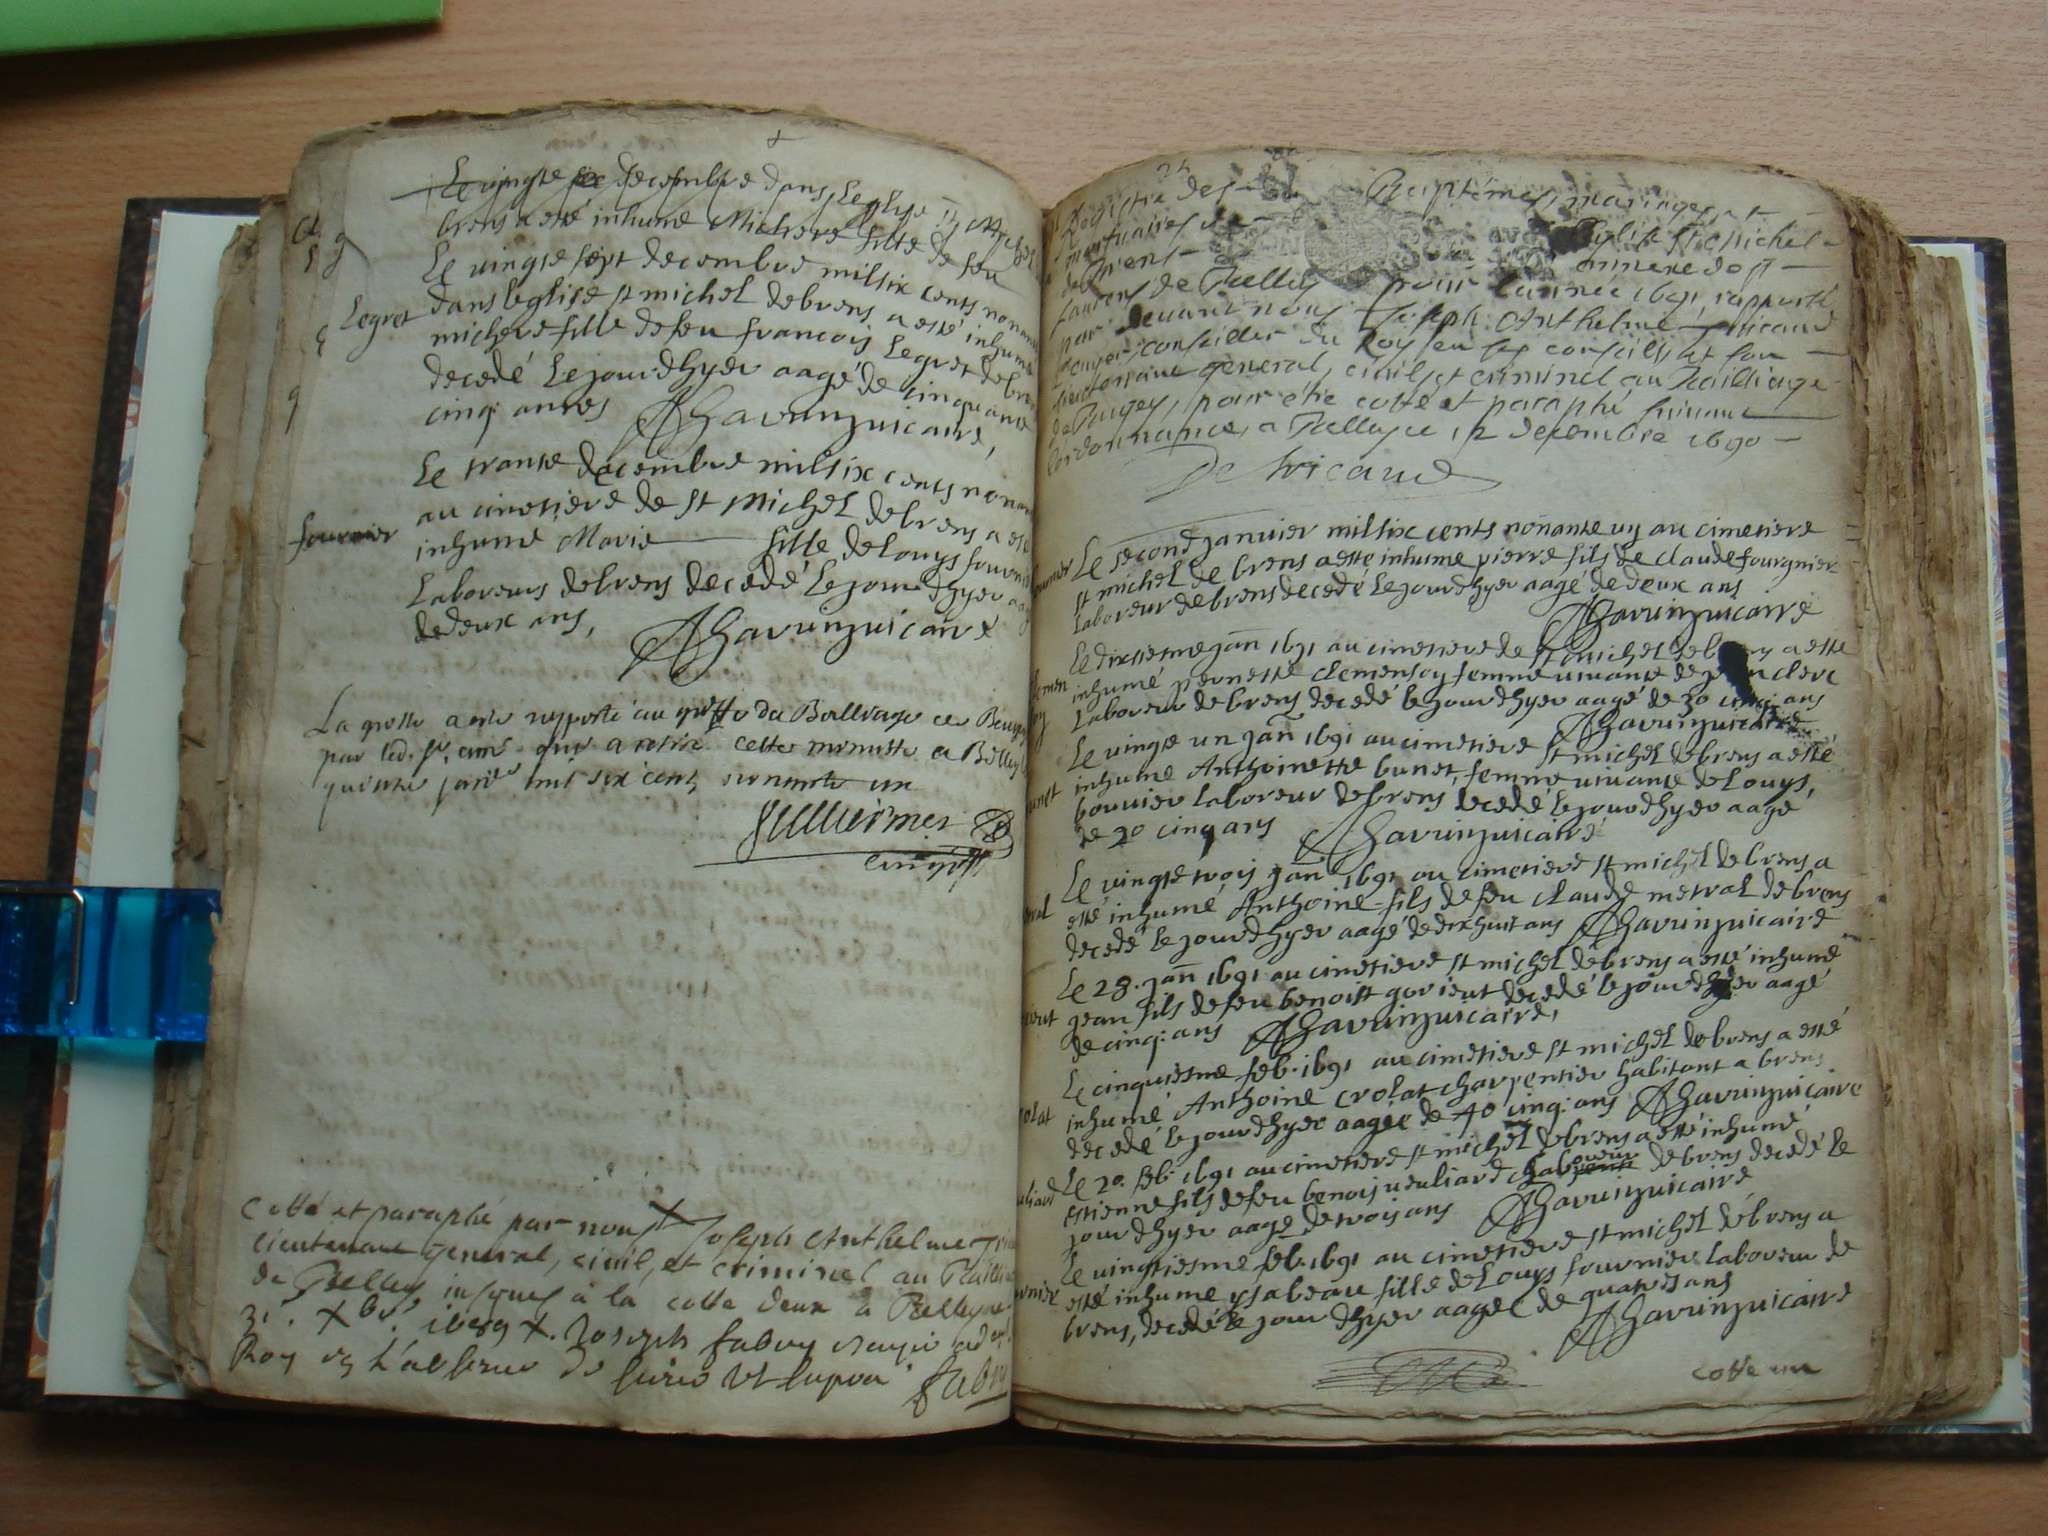 Le vingte six decembre dans Leglise st Michel
brens a esté inhumé Michere fille de feu
Le vingte sept decembre mil six cents nonante
dans leglise st michel de brens a esté inhumé
Legret
michere fille de feu francois Legret de brens
decedé Le jour dhyer aagé de cinquante
cinq annes AHavrin vicaire,
Le trante decembre mil six cents nonan
au cimetiere de st Michel de brens a esté
fournier
inhumé Marie fille de Louys fournier
Laboreur de brens decedé Le jour dhyer aag
de deux ans,
AHavrin vicaire
La grosse a esté rapporté au greffe du Bailliage de Beugey
par led. Sr. curé qui a retiré cette minutte a Belley
quinze janer mil six cent nonante un
Cotté et paraphé par nous Joseph Anthelme Tri
Lieutenant general, civil, et criminel au Bailli
de Belley jusques à la cotte deux à Belley
31. Xbre 1689 Joseph fabry
Roy en l'absence de
fabry
24
Registre des Baptêmes, mariages et
mortuaires de Eglise St Michel
de Brens annexe de st
Laurens de Belley pour l'année 1691 rapporté
par devant nous Joseph Anthelme Tricaud
Ecuyer conseiller du Roy en ses conseils et son
Lieutenant general, civil, et criminel au Bailliage
de Bugey, pour être cotté et paraphé suivant
l'ordonnance, a Belley ce 12 decembre 1690
De Tricaud
Le second janvier mil six cents nonante un au cimetiere
st michel de brens a esté inhumé pierre fils de claude fourgnier
Laboreur de brens decedé Le jour dhyer aagé de deux ans
AHavrin vicaire
Le dixiesme jan 1691 au cimetiere de st michel de brens a esté
inhumé pernette clemensoy femme vivante de clerc
Laboreur de brens decedé le jour dhyer aagé de 30 cinq ans
AHavrin vicaire
Le vingte un jan 1691 au cimetiere st michel de brens a esté
inhumé Anthoinette bunet, femme vivante de Louys,
bouvier Laboreur de brens decedé le jour dhyer aagé
de 20 cinq ans AHavrin vicaire
Le vingte trois jan 1691 au cimetiere st michel de brens a
esté inhumé Anthoine fils de feu claude metral de brens
decedé le jour dhyer aagé de dix huit ans AHavrin vicaire
Le 28. jan 1691 au cimetiere st michel de brens a esté inhumé
jean fils de feu benoist gorient decedé le jour dhyer aagé
de cinq: ans AHavrin vicaire,
Le cinquiesme feb. 1691 au cimetiere st michel de brens a esté
inhumé Anthoine crolat charpentier habitant a brens
decedé le jour dhyer aagée de 40 cinq: ans AHavrin vicaire
Le 20. feb. 1691 au cimetiere st michel de brens a esté inhumé
estienne fils de feu benoist veuliard Laboreur de brens decedé le
jour dhyer aagé de trois ans AHavrin vicaire
Le vingtiesme feb. 1691 au cimetiere st michel de brens a
esté inhumé ysabeau fille de Louys fournier Laboreur de
brens, decedé le jour dhyer aagée de quatre ans
AHavrin vicaire
cotte un